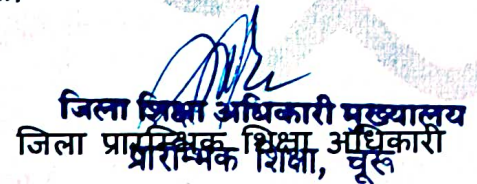 जिला शिक्षा अधिकारी मुख्यालय
जिला प्रारम्भिक शिक्षा अधिकारी
प्रारम्भिक शिक्षा, चूरू